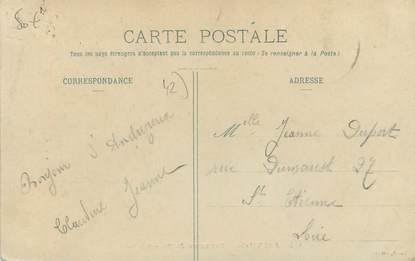 CARTE POSTALE
Tous les pays étrangers n'acceptent pas la correspondance au recto (Se renseigner à la Poste)
CORRESPONDANCE
ADRESSE
42)
Bonjour d'Andrézieux
Claudine Jeanne
Melle Jeanne Duport
rue 27
St Etienne
Loire